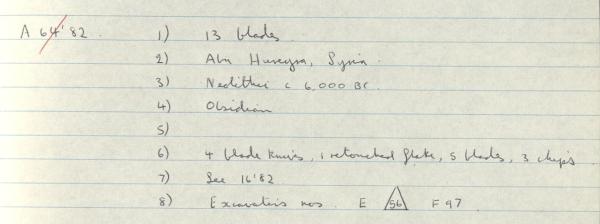 A 64'82 1) 13 blades
2) Abu Hureyra, Syria.
3) Neolithic c 6,000 BC.
4) Obsidian
5)
6) 4 blade knives, 1 retouched flake, 5 blades, 3 chips
7) See 16'82
8) Excavators nos. E 56 F 97